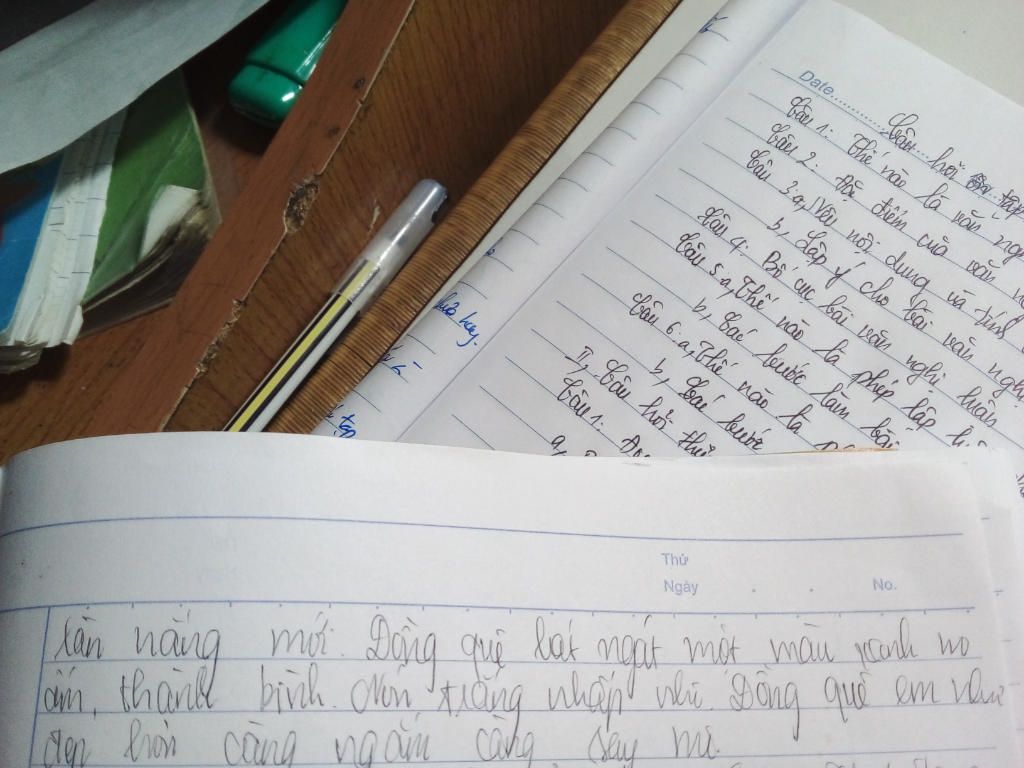 Date
Câu hỏi ôn tập
Câu 1: Thế nào là văn ngh
Câu 2: Đặc điểm của văn n
Câu 3: a, Nêu nội dung và tính
b, Lập ý cho bài văn nghị
Câu 4: Bố cục bài văn nghị luận
Câu 5: a, Thế nào là phép lập l
b, Các bước làm bài
Câu 6: a, Thế nào là
b, Các bước
II, Câu hỏi thự
Câu 1: Đọ
a,
Thứ
Ngày . . No.
tràn nắng mới. Đồng quê bát ngát một màu xanh no
ấm, thành bình. Nón trắng nhấp nhô. Đồng quê em
đẹp hơn càng ngắm càng say mê.